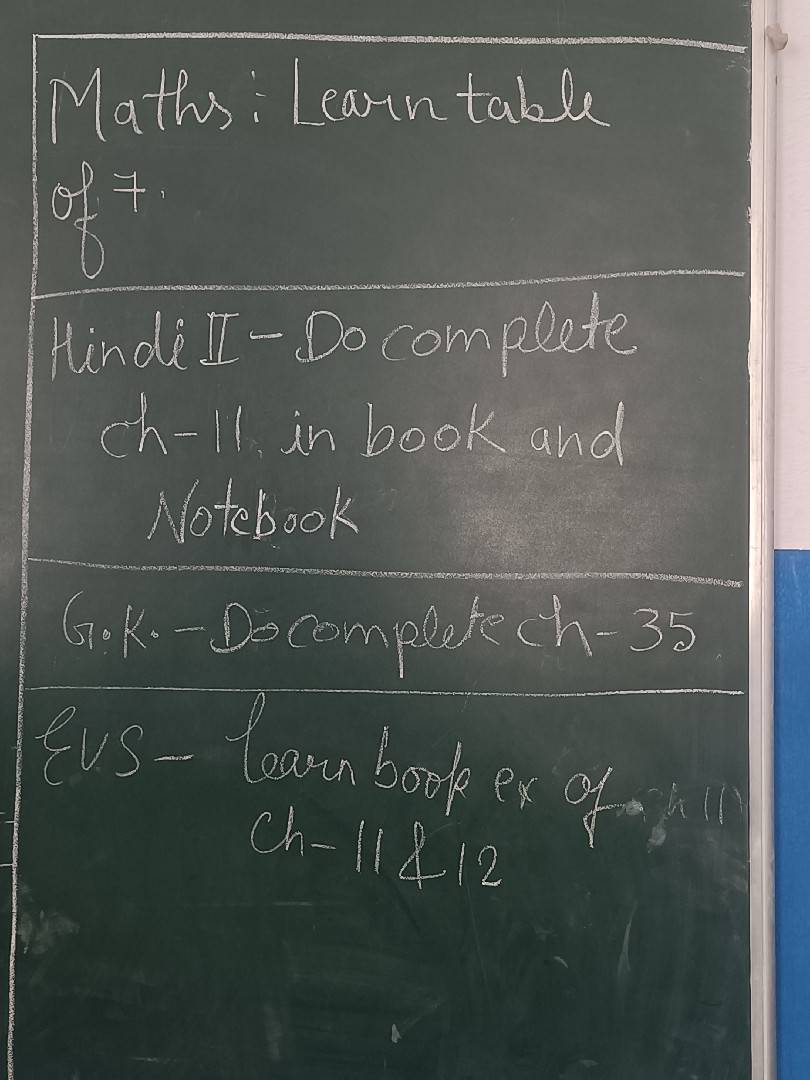 Maths: Learn table
of 7.
Hindi II - Do complete
ch-11. in book and
Notebook
G.K. - Do complete ch-35
EVS - learn book ex of
ch-11 & 12